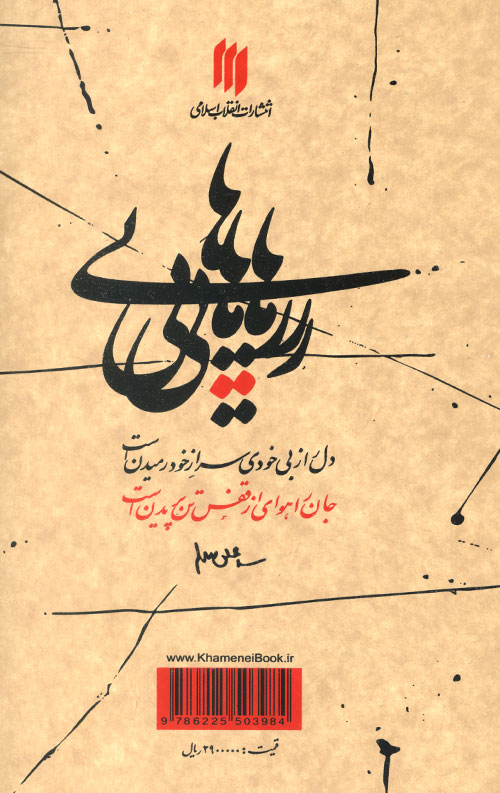 انتشارات انقلاب اسلامی
دل را ز بی خودی سر از خود رمیدن است
جان را هوای از قفس تن پریدن است
www.KhameneiBook.ir
9 786225 503984
قیمت: ۲۹۰۰۰۰۰ ریال